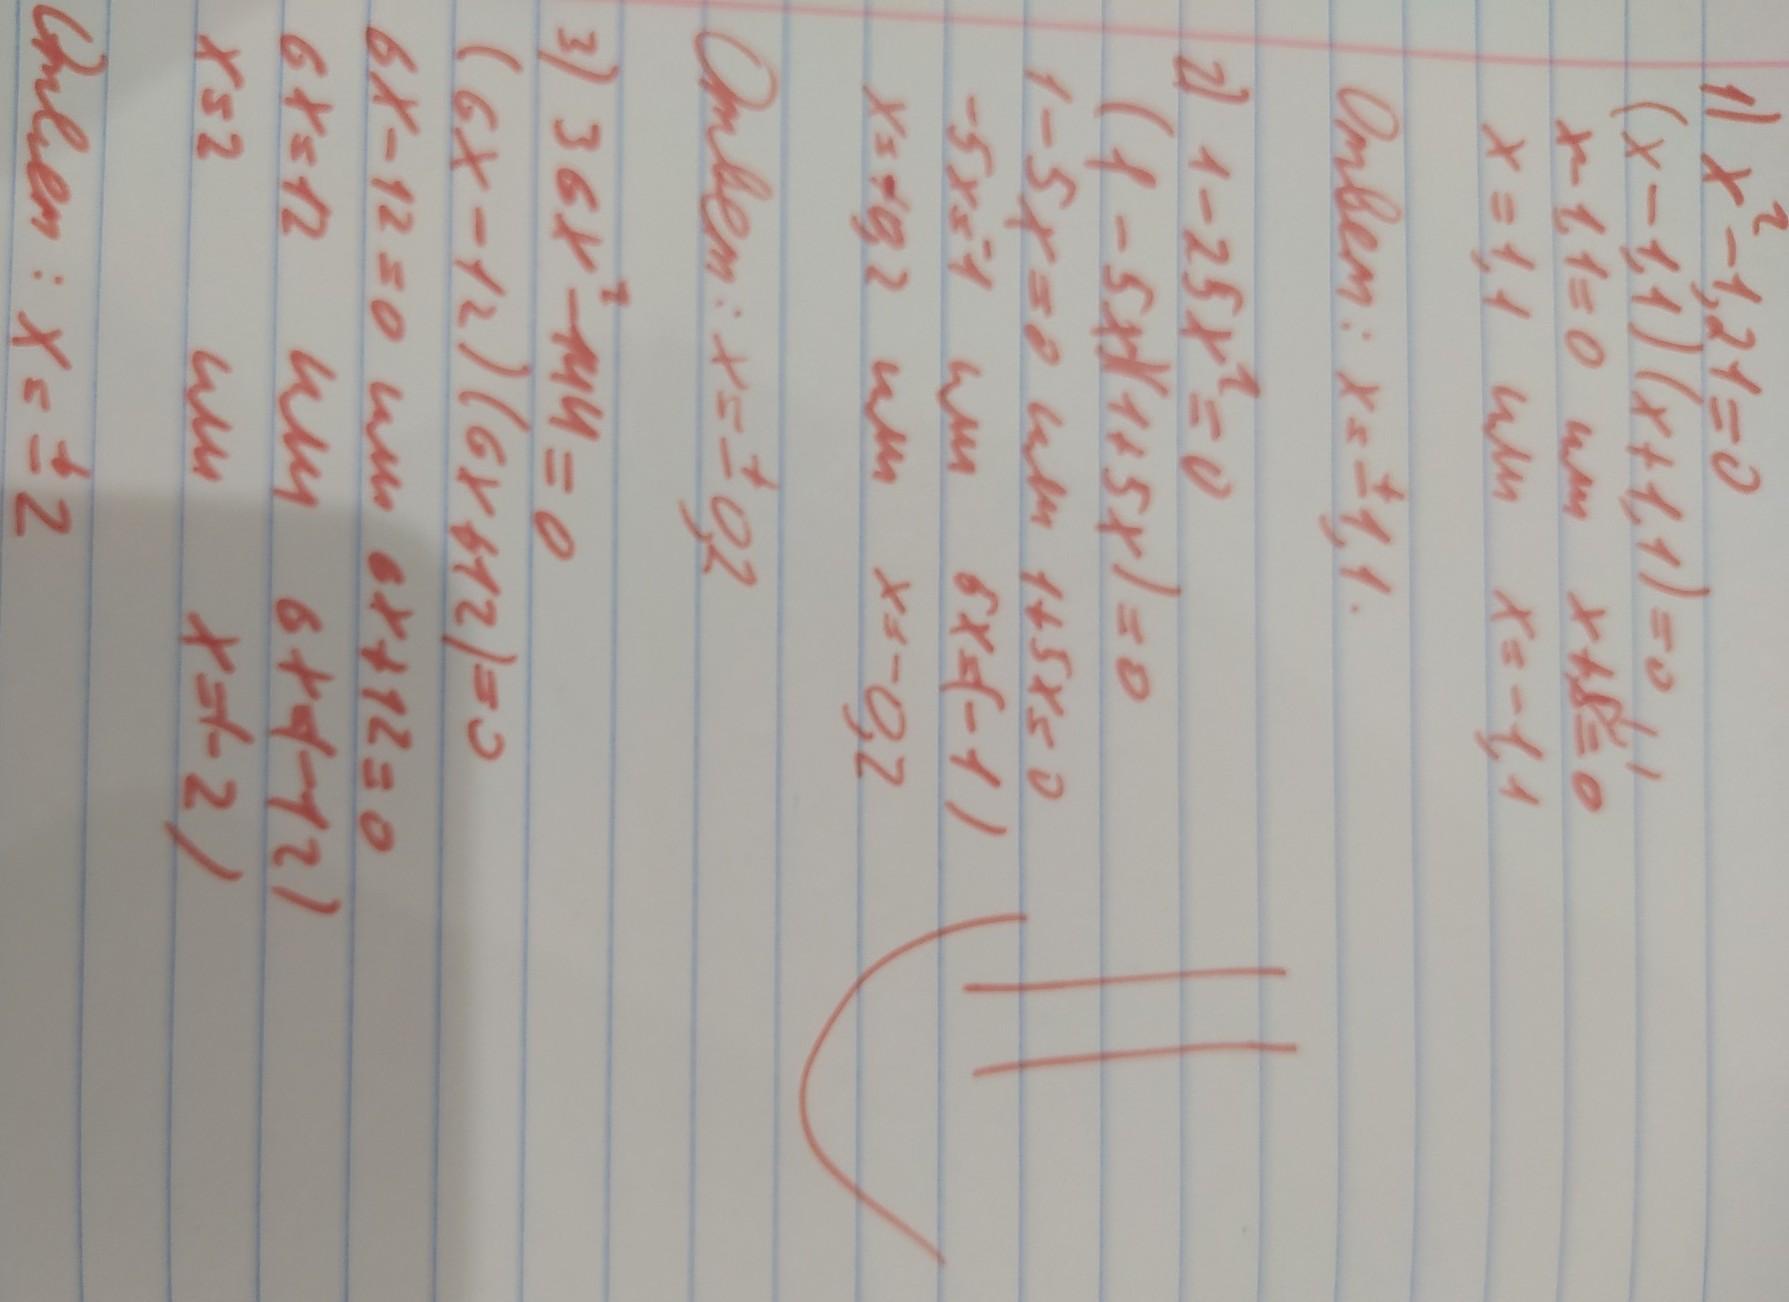 1) x² - 1,21 = 0
(x - 1,1)(x + 1,1) = 0
x - 1,1 = 0 или x + 1,1 = 0
x = 1,1 или x = -1,1
Ответ: x = ±1,1.
2) 1 - 25x² = 0
(1 - 5x)(1 + 5x) = 0
1 - 5x = 0 или 1 + 5x = 0
-5x = -1 или 5x = (-1)
x = +0,2 или x = -0,2
Ответ: x = ±0,2
3) 36x² - 144 = 0
(6x - 12)(6x + 12) = 0
6x - 12 = 0 или 6x + 12 = 0
6x = 12 или 6x = (-12)
x = 2 или x = (-2)
Ответ: x = ±2